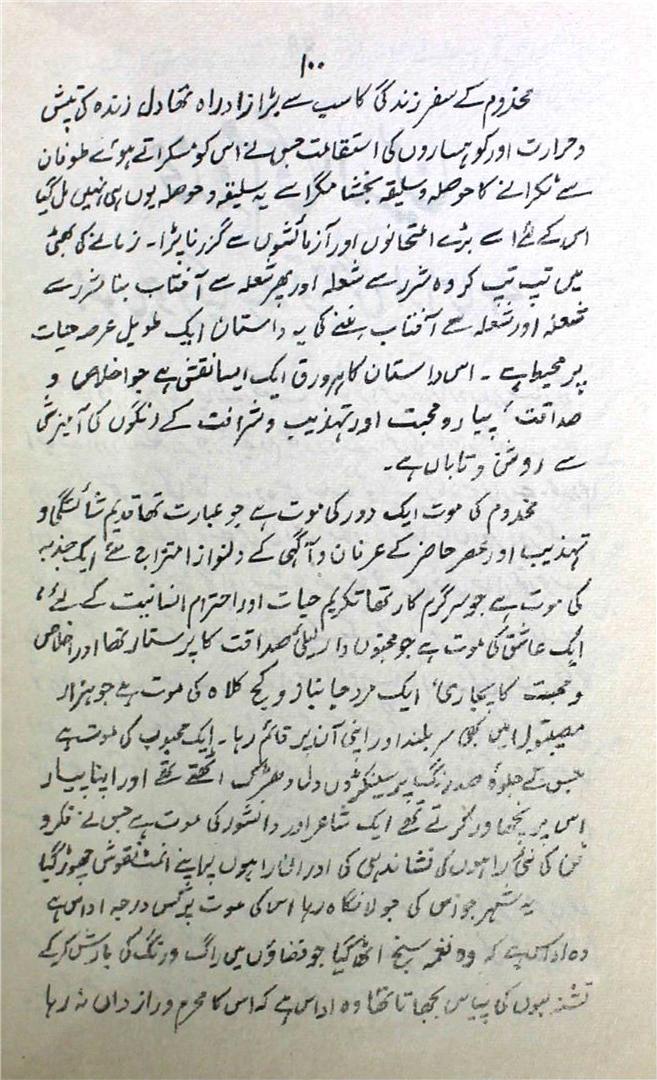 ۱۰۰
مخدوم کے سفر زندگی کا سب سے بڑا زادراہ تھا دل زندہ کی تپش
و حرارت اور کوہساروں کی استقامت جس نے اس کو مسکراتے ہوئے طوفان
سے ٹکرانے کا حوصلہ و سلیقہ بخشا مگر اسے یہ سلیقہ و حوصلہ یوں ہی نہیں مل گیا
اس کے لئے اسے بڑے امتحانوں اور آزمائشوں سے گزرنا پڑا۔ زمانے کی بھٹی
میں تپ تپ کر وہ شرر سے شعلہ اور پھر شعلہ سے آفتاب بنا شرر سے
شعلہ اور شعلہ سے آفتاب بننے کی یہ داستان ایک طویل عرصہ حیات
پر محیط ہے ۔ اس داستان کا ہر ورق ایک ایسا نقش ہے جو اخلاص و
صداقت ، پیار و محبت اور تہذیب و شرافت کے رنگوں کی آمیزش
سے روشن و تاباں ہے۔
مخدوم کی موت ایک دور کی موت ہے جو عبارت تھا قدیم شائستگی و
تہذیب اور عصر حاضر کے عرفان و آگہی کے دلنواز امتزاج سے ایک جذبہ
کی موت ہے جو سرگرم کار تھا تکریم حیات اور احترام انسانیت کے لئے ،
ایک عاشق کی موت ہے جو مجنوں وار لیلیٰ صداقت کا پرستار تھا اور اخلاص
و محبت کا پجاری ، ایک مرد جانباز و کج کلاہ کی موت ہے جو ہزار
مصیبتوں میں بھی سر بلند اور اپنی آن پر قائم رہا۔ ایک محبوب کی موت ہے
جس کے جلوۂ صد رنگ پر سینکڑوں دل دھڑک اٹھتے تھے اور اپنا پیار
اس پر نچھاور کرتے تھے ایک شاعر اور دانشور کی موت ہے جس نے فکر و
فن کی نئی راہوں کی نشاندہی کی اور ان راہوں پر اپنے انمٹ نقوش چھوڑ گیا
یہ شہر جو اس کی جولانگاہ رہا اس کی موت پر کس درجہ اداس ہے
وہ اداس ہے کہ وہ نغمہ سنج اٹھ گیا جو فضاؤں میں راگ و رنگ کی بارش کر کے
تشنہ لبوں کی پیاس بجھاتا تھا وہ اداس ہے کہ اس کا محرم و راز داں نہ رہا